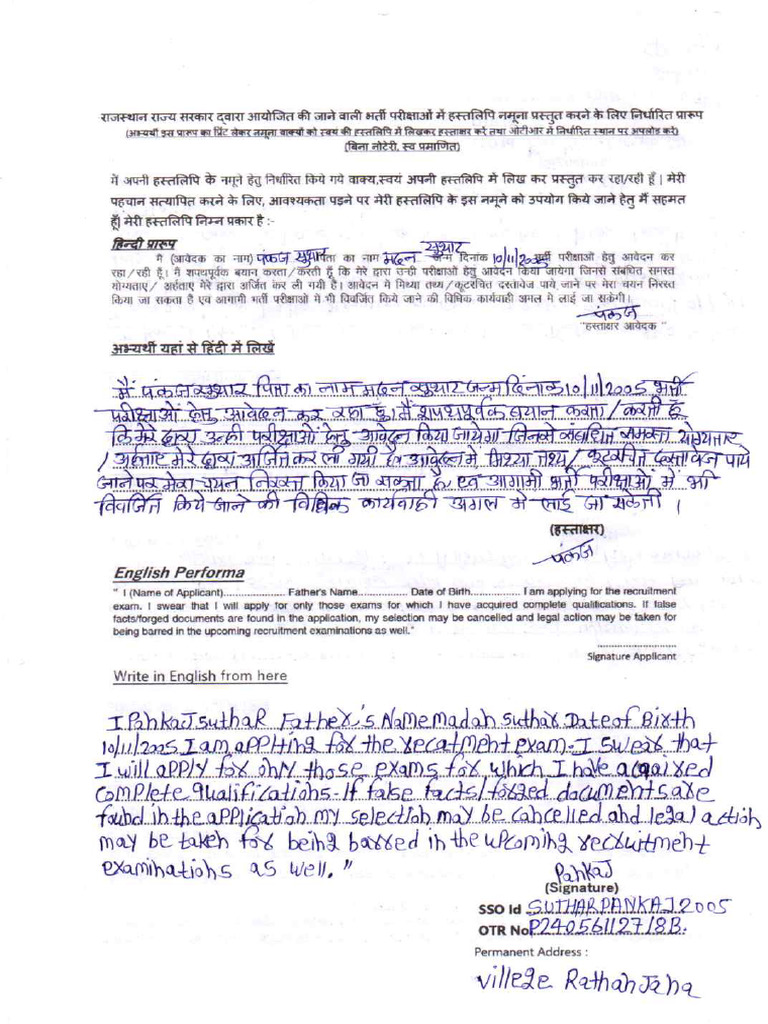 राजस्थान राज्य सरकार द्वारा आयोजित की जाने वाली भर्ती परीक्षाओं में हस्तलिपि नमूना प्रस्तुत करने के लिए निर्धारित प्रारूप
(अभ्यर्थी इस प्रारूप का प्रिंट लेकर नमूना वाक्यों को स्वयं की हस्तलिपि में लिखकर हस्ताक्षर करे तथा ओटीआर में निर्धारित स्थान पर अपलोड करें)
(बिना नोटेरी, स्व प्रमाणित)
में अपनी हस्तलिपि के नमूने हेतु निर्धारित किये गये वाक्य,स्वयं अपनी हस्तलिपि में लिख कर प्रस्तुत कर रहा/रही हूँ | मेरी
पहचान सत्यापित करने के लिए, आवश्यकता पड़ने पर मेरी हस्तलिपि के इस नमूने को उपयोग किये जाने हेतु मैं सहमत
हूँ| मेरी हस्तलिपि निम्न प्रकार है :-
हिन्दी प्रारूप
" मैं (आवेदक का नाम) पंकज सुथार पिता का नाम मदन सुथार जन्म दिनांक 10/11/2005 भर्ती परीक्षाओ हेतु आवेदन कर
रहा/रही हूँ। मैं शपथपूर्वक बयान करता/करती हूँ कि मेरे द्वारा उन्ही परीक्षाओ हेतु आवेदन किया जायेगा जिनसे संबधित समस्त
योग्यताए/ अर्हताए मेरे द्वारा अर्जित कर ली गयी है। आवेदन में मिथ्या तथ्य/कूटरचित दस्तावेज पाये जाने पर मेरा चयन निरस्त
किया जा सकता है एवं आगामी भर्ती परीक्षाओं में भी विवर्जित किये जाने की विधिक कार्यवाही अमल में लाई जा सकेगी।
पंकज
"हस्ताक्षर आवेदक "
अभ्यर्थी यहां से हिंदी में लिखें
मैं पंकज सुथार पिता का नाम मदन सुथार जन्म दिनांक 10/11/2005 भर्ती
परीक्षाओं हेतु आवेदन कर रहा हूँ। मैं शपथपूर्वक बयान करता/करती हूँ
कि मेरे द्वारा उन्ही परीक्षाओं हेतु आवेदन किया जायेगा जिनसे संबधित समस्त योग्यताए
/अर्हताए मेरे द्वारा अर्जित कर ली गयी है। आवेदन में मिथ्या तथ्य/कूटरचित दस्तावेज पाये
जाने पर मेरा चयन निरस्त किया जा सकता है, एवं आगामी भर्ती परीक्षाओं में भी
विवर्जित किये जाने की विधिक कार्यवाही अमल मे लाई जा सकेगी ।
(हस्ताक्षर)
पंकज
English Performa
" I (Name of Applicant)..................... Father's Name................ Date of Birth................. I am applying for the recruitment
exam. I swear that I will apply for only those exams for which I have acquired complete qualifications. If false
facts/forged documents are found in the application, my selection may be cancelled and legal action may be taken for
being barred in the upcoming recruitment examinations as well."
Signature Applicant
Write in English from here
I Pankaj suthar Father's Name madan suthar Date of Birth
10/11/2005 I am applting for the recatment exam. I swear that
I will apply for only those exams for which I have acqaired
complete qualifications. If false facts/forged documents are
found in the application my selection may be cancelled and legal action
may be taken for being barred in the upcoming recruitment
examinations as well."
Pankaj
(Signature)
SSO Id SUTHARPANKAJ2005
OTR No P24056112718B.
Permanent Address :
villege Rathanjana